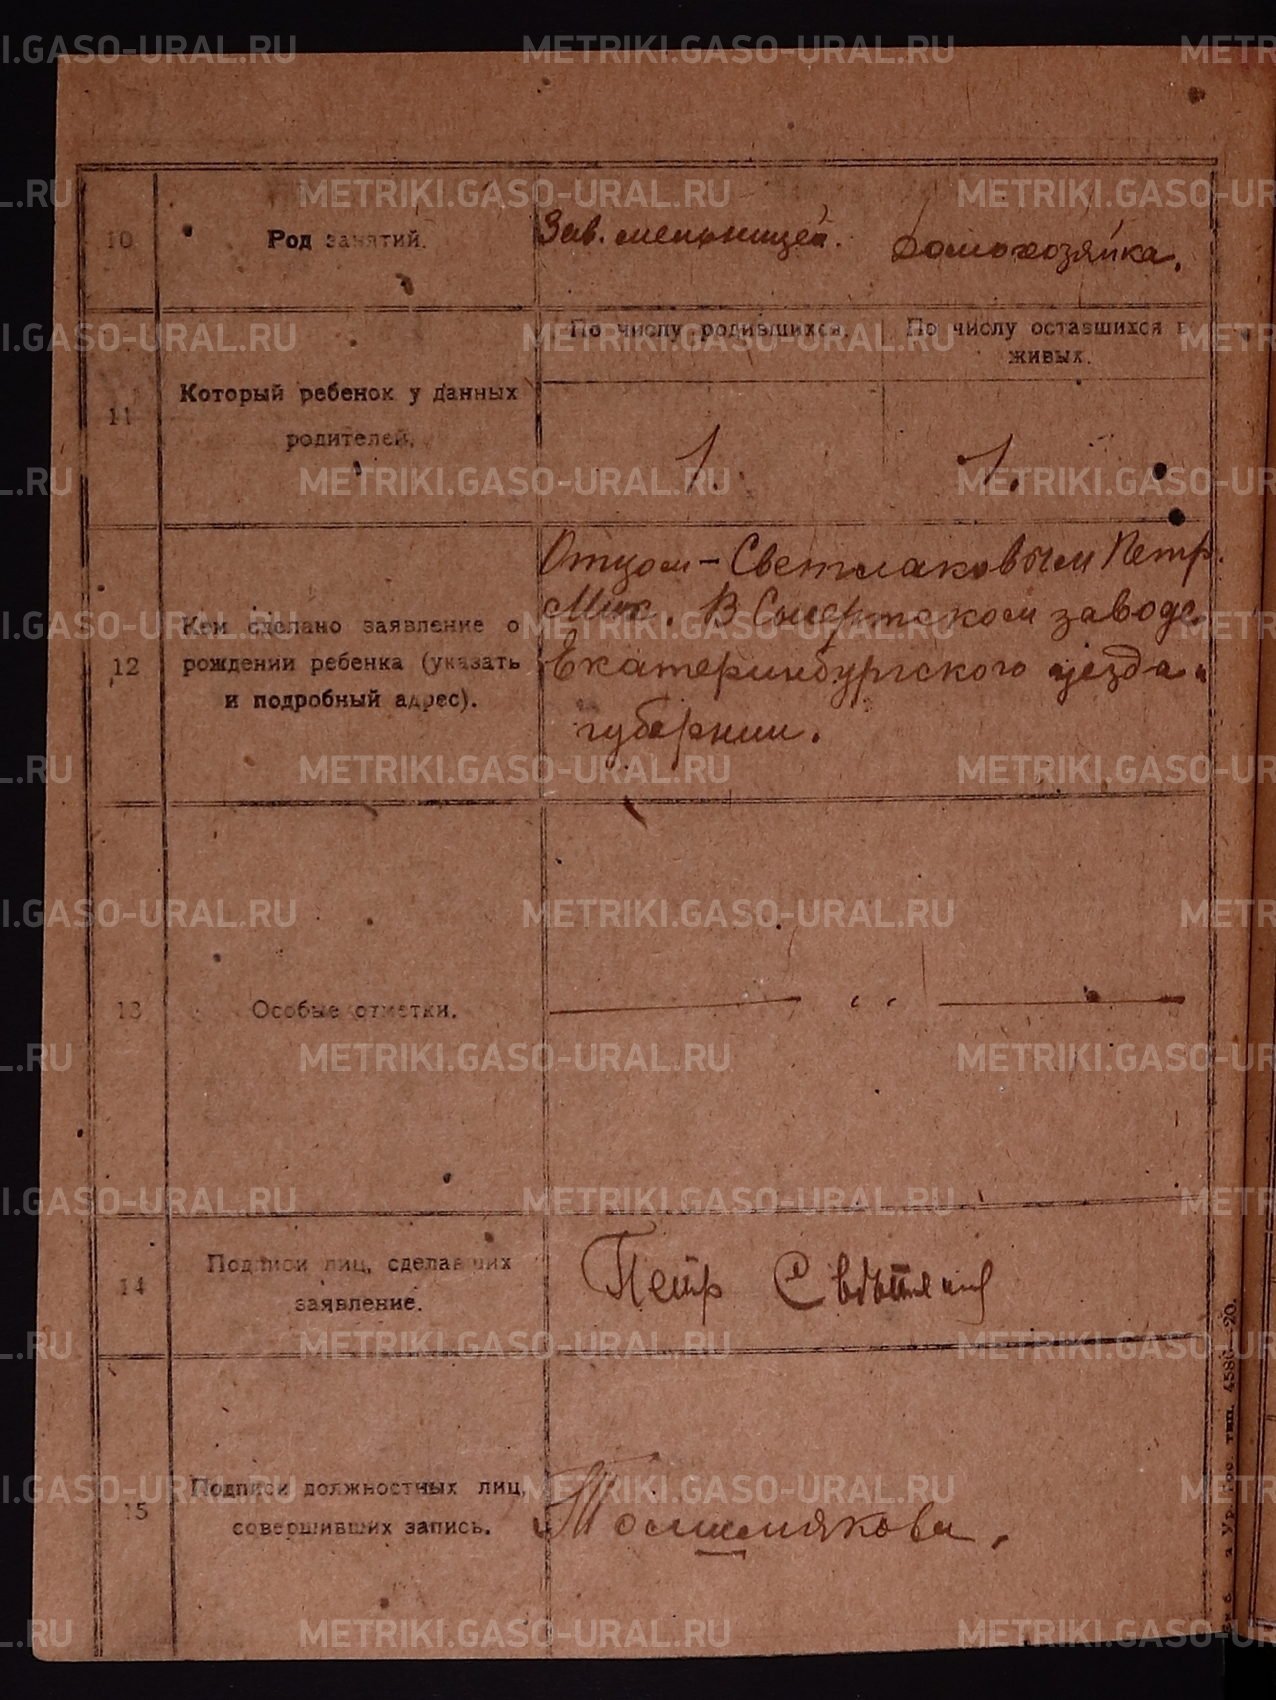 10
Род занятий.
Зав. мельницей.
Домохозяйка.
11
Который ребенок у данных
родителей.
По числу родившихся.
По числу оставшихся в
живых.
1.
1.
12
Кем сделано заявление о
рождении ребенка (указать
и подробный адрес).
Отцом – Светлаковым Петр.
Мих. В Сысертском заводе
Екатеринбургского уезда и
губернии.
13
Особые отметки.
14
Подписи лиц, сделавших
заявление.
Петр
15
Подписи должностных лиц,
совершивших запись.
METRIKI.GASO-URAL.RU